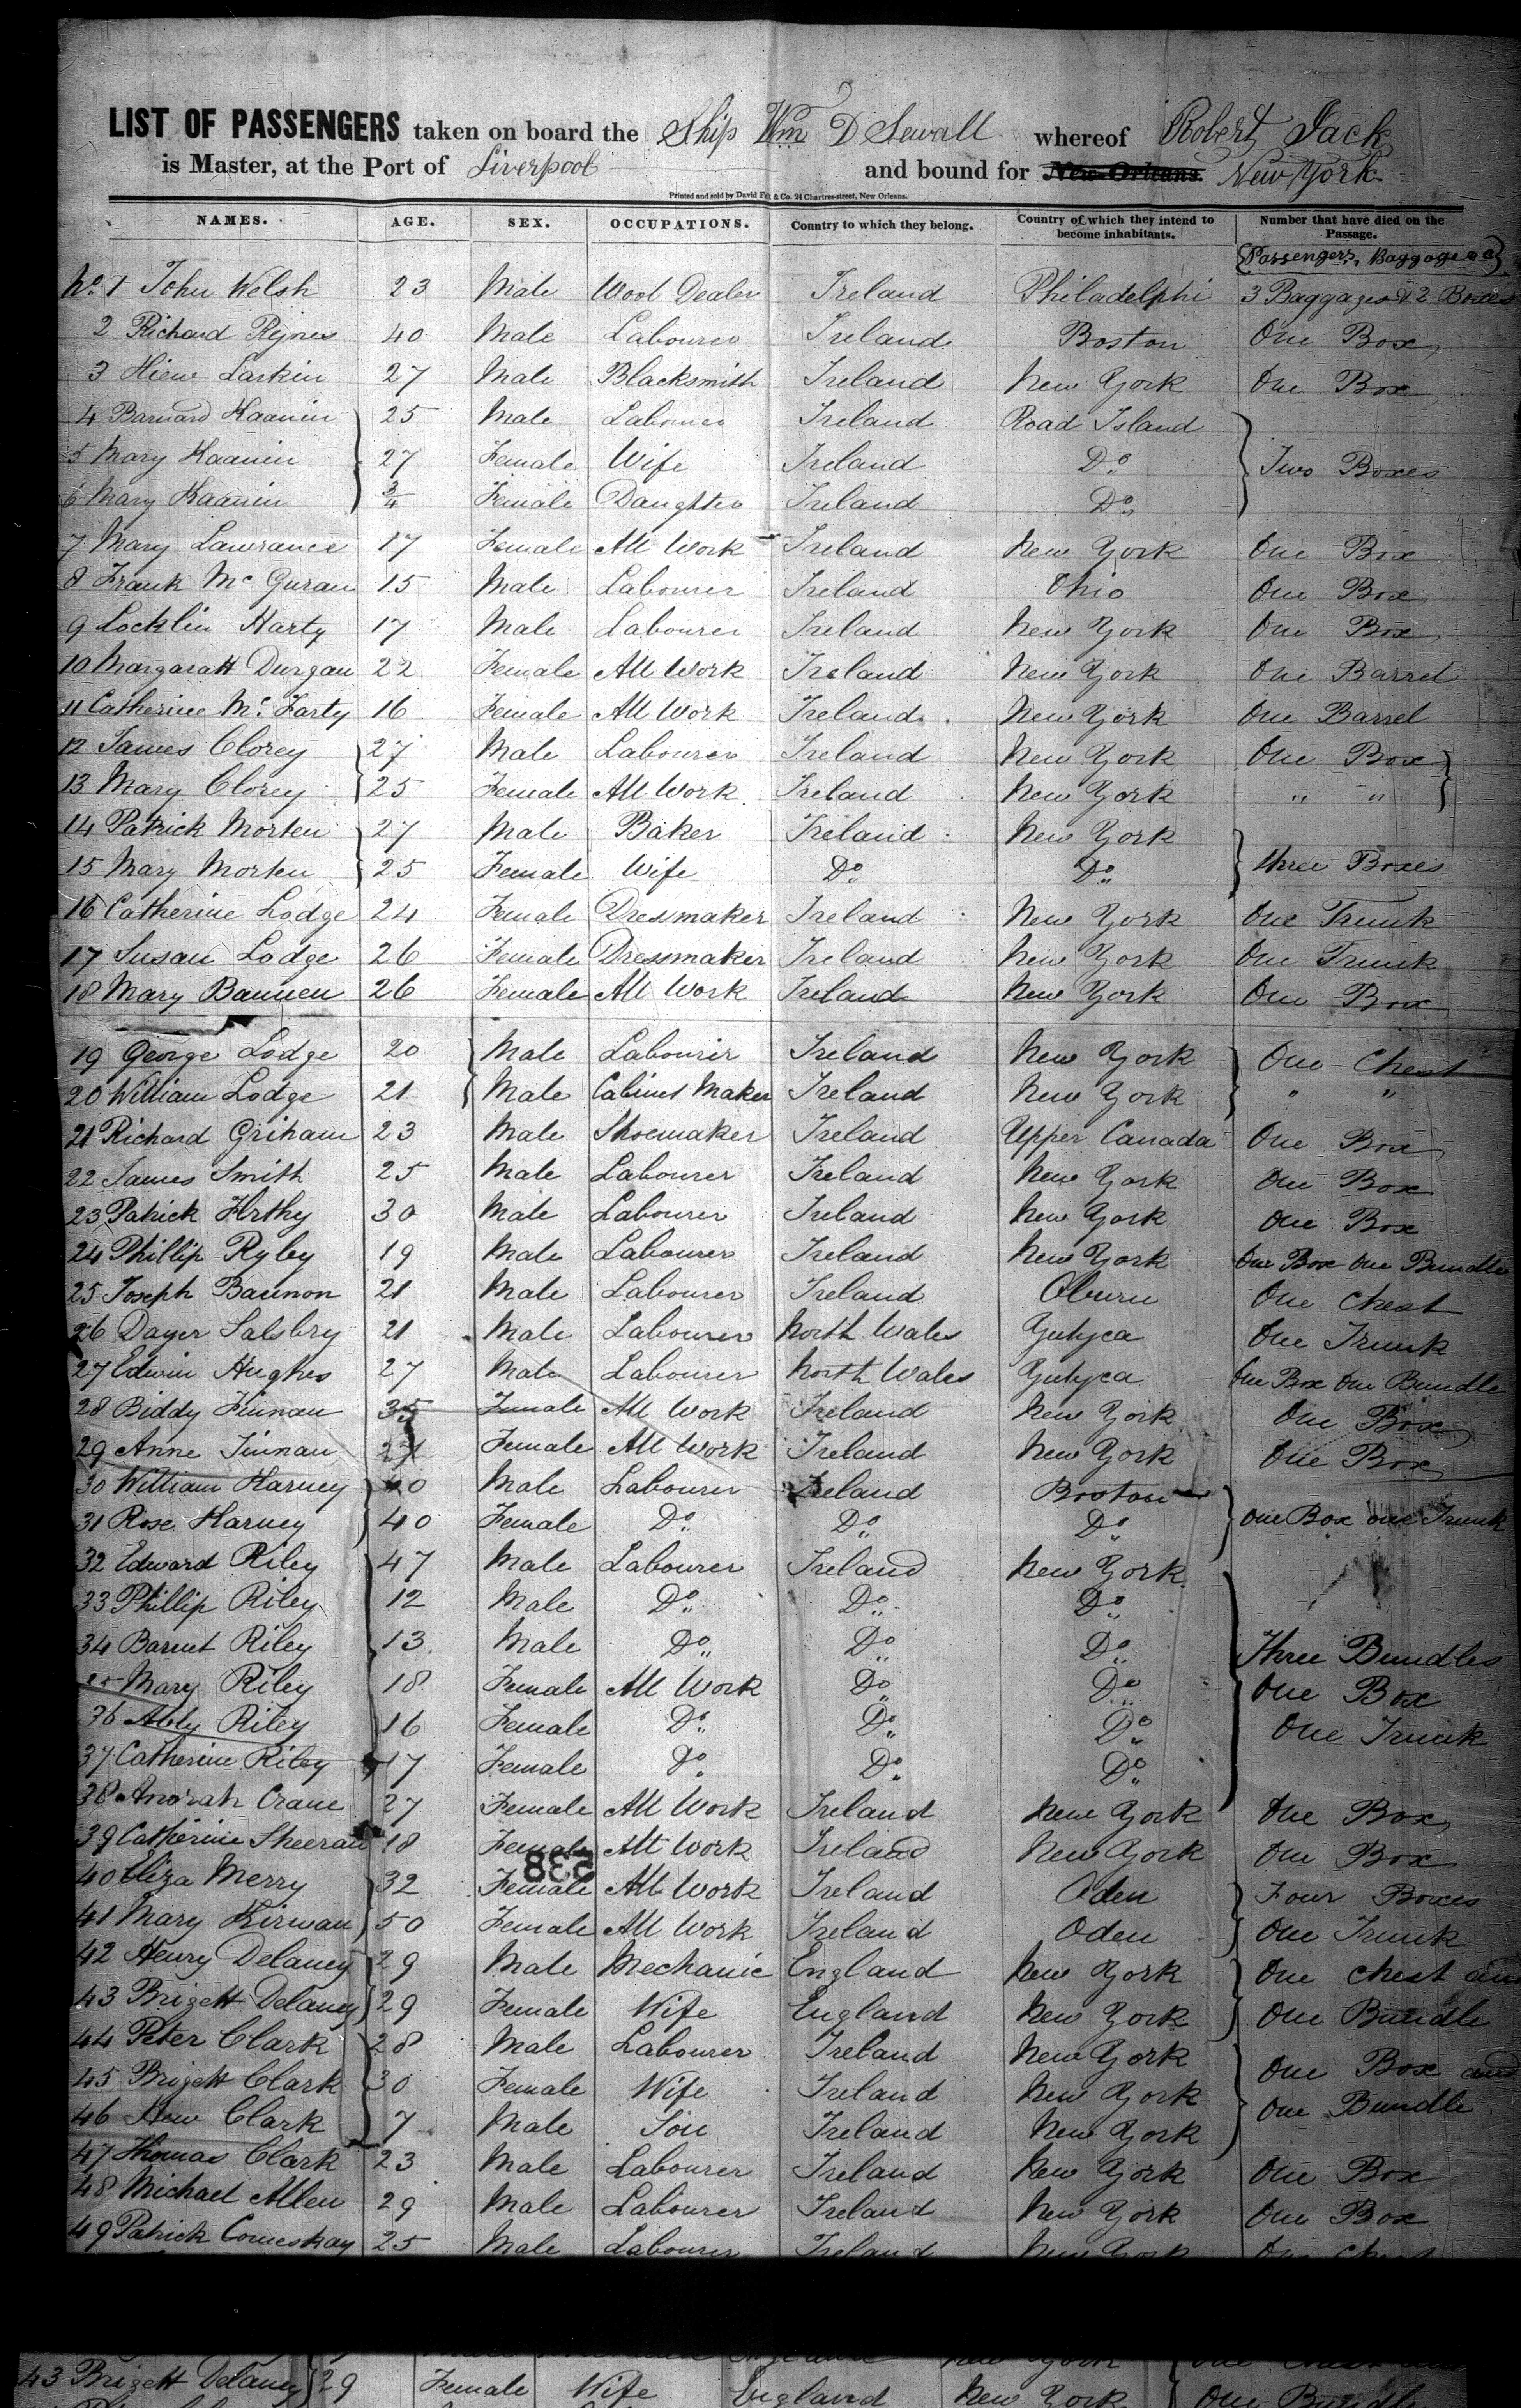 LIST OF PASSENGERS taken on board the Ship Wm D Sewall whereof Robert Jack
is Master, at the Port of Liverpool and bound for New Orleans. New York.
Printed and sold by David Felt & Co. 24 Chartres-street, New Orleans.
NAMES. AGE. SEX. OCCUPATIONS. Country to which they belong. Country of which they intend to become inhabitants. Number that have died on the Passage.
{Passengers, Baggage &c}
No. 1 John Welsh 23 Male Wool Dealer Ireland Philadelphi 3 Baggages & 2 Boxes
2 Richard Rynes 40 Male Labourer Ireland Boston One Box
3 Hiew Larkin 27 Male Blacksmith Ireland New York One Box
4 Barnard Kaanin 25 Male Labourer Ireland Road Island
5 Mary Kaanin 27 Female Wife Ireland Do Two Boxes
6 Mary Kaanin 3/4 Female Daughter Ireland Do
7 Mary Lawrance 17 Female All Work Ireland New York One Box
8 Frank Mc Guran 15 Male Labourer Ireland Ohio One Box
9 Locklin Harty 17 Male Labourer Ireland New York One Box
10 Margaratt Durgan 22 Female All Work Ireland New York One Barrel
11 Catherine Mc Farty 16 Female All Work Ireland New York One Barrel
12 James Clorey 27 Male Labourer Ireland New York One Box
13 Mary Clorey 25 Female All Work Ireland New York " "
14 Patrick Morten 27 Male Baker Ireland New York
15 Mary Morten 25 Female Wife Do Do three Boxes
16 Catherine Lodge 24 Female Dressmaker Ireland New York One Trunk
17 Susan Lodge 26 Female Dressmaker Ireland New York One Trunk
18 Mary Bannen 26 Female All Work Ireland New York One Box
19 George Lodge 20 Male Labourer Ireland New York One Chest
20 William Lodge 21 Male Cabinet Maker Ireland New York " "
21 Richard Griham 23 Male Shoemaker Ireland Upper Canada One Box
22 James Smith 25 Male Labourer Ireland New York One Box
23 Patrick 30 Male Labourer Ireland New York One Box
24 Phillip Ryley 19 Male Labourer Ireland New York One Box One Bundle
25 Joseph Bannon 21 Male Labourer Ireland Oburn One Chest
26 Dayer Salsbry 21 Male Labourer North Wales Yutyca One Trunk
27 Edwin Hughes 27 Male Labourer North Wales Yutyca One Box One Bundle
28 Biddy Finnan 35 Female All Work Ireland New York One Box
29 Anne Finnan Female All Work Ireland New York One Box
30 William Harney 40 Male Labourer Ireland Boston
31 Rose Harney 40 Female Do Do Do One Box one Trunk
32 Edward Riley 47 Male Labourer Ireland New York
33 Phillip Riley 12 Male Do Do Do
34 Barnet Riley 13 Male Do Do Do Three Bundles
35 Mary Riley 18 Female All Work Do Do One Box
36 Ally Riley 16 Female Do Do Do One Trunk
37 Catherine Riley 17 Female Do Do Do
38 Anorah Crane 27 Female All Work Ireland New York One Box
39 Catherine Sheeran 18 Female All Work Ireland New York One Box
538
40 Eliza Merry 32 Female All Work Ireland Oden Four Boxes
41 Mary Kirwan 50 Female All Work Ireland Oden One Trunk
42 Henry Delaney 29 Male Mechanic England New York One Chest and
43 Brigett Delaney 29 Female Wife England New York One Bundle
44 Peter Clark 28 Male Labourer Ireland New York
45 Brigett Clark 30 Female Wife Ireland New York One Box and
46 Hew Clark 7 Male Son Ireland New York One Bundle
47 Thomas Clark 23 Male Labourer Ireland New York One Box
48 Michael Allen 29 Male Labourer Ireland New York One Box
49 Patrick Comeskay 25 Male Labourer Ireland New York One Chest
43 Brigett Delaney 29 Female Wife England New York One Bundle